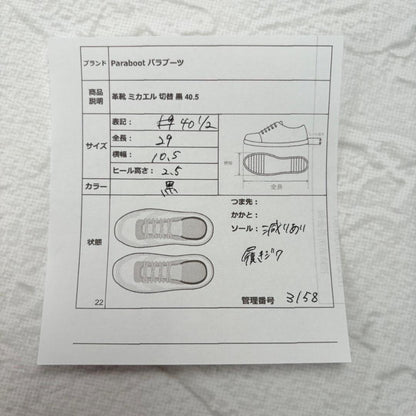 ブランド Paraboot パラブーツ
商品説明 革靴 ミカエル 切替 黒 40.5
サイズ
表記： 40 1/2
全長： 29
横幅： 10.5
ヒール高さ： 2.5
横幅
全長
カラー 黒
状態
つま先：
かかと：
ソール： 減りあり
履きジワ
22
管理番号 3158